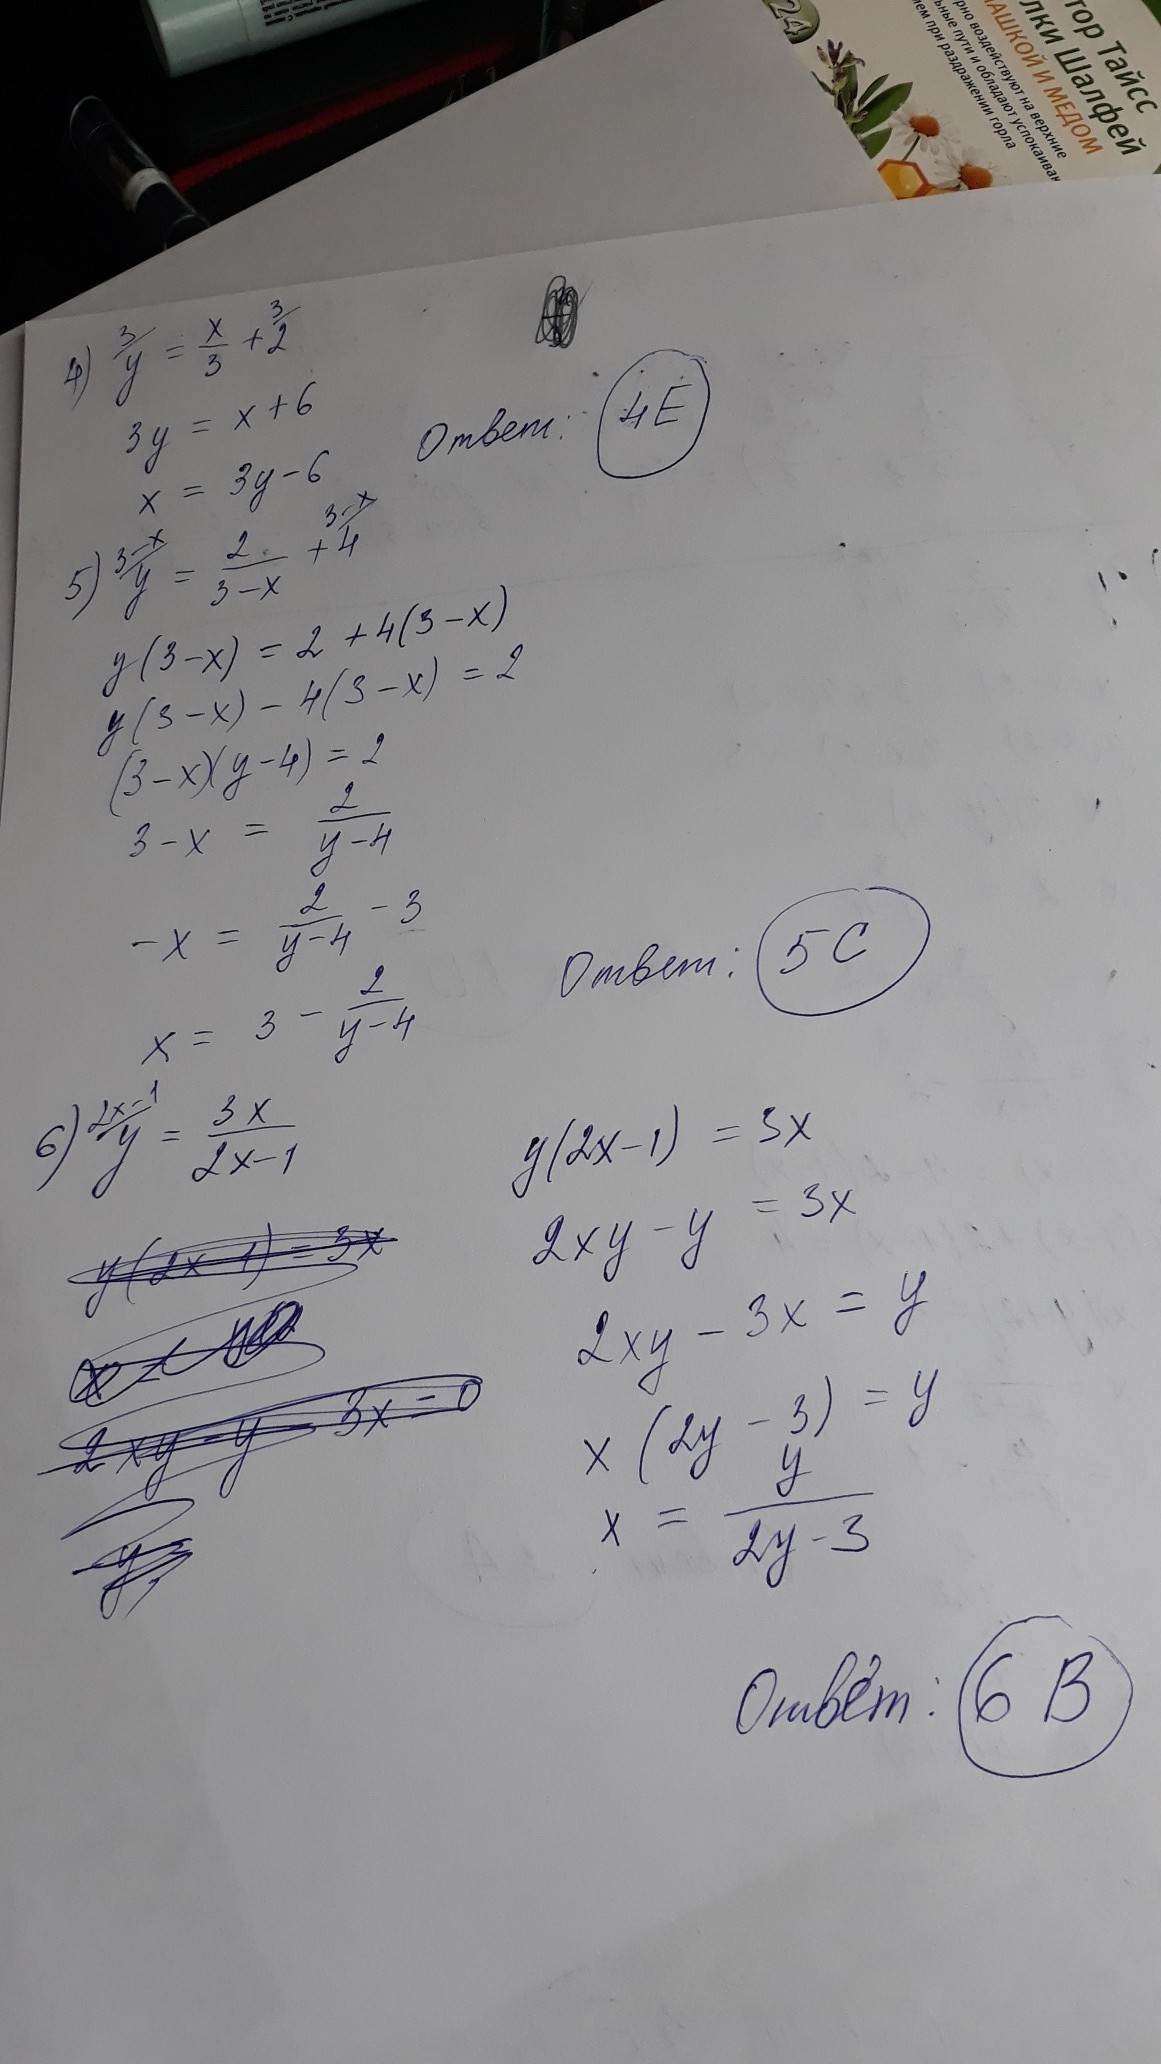 24
тор Тайсс
лки Шалфей
МАШКОЙ И МЕДОМ
рно воздействуют на верхние
льные пути и обладают успокаиваю
ием при раздражении горла
4) 3/ y = x/3 + 3/ 2
3y = x + 6
x = 3y - 6
Ответ: 4E
5) 3-x/ y = 2/(3-x) + 3-x/ 4
y(3-x) = 2 + 4(3-x)
y(3-x) - 4(3-x) = 2
(3-x)(y-4) = 2
3-x = 2/(y-4)
-x = 2/(y-4) - 3
x = 3 - 2/(y-4)
Ответ: 5C
6) 2x-1/ y = 3x/(2x-1)
y(2x-1) = 3x
2xy-y-3x=0
y(2x-1) = 3x
2xy - y = 3x
2xy - 3x = y
x(2y-3) = y
x = y/(2y-3)
Ответ: 6B